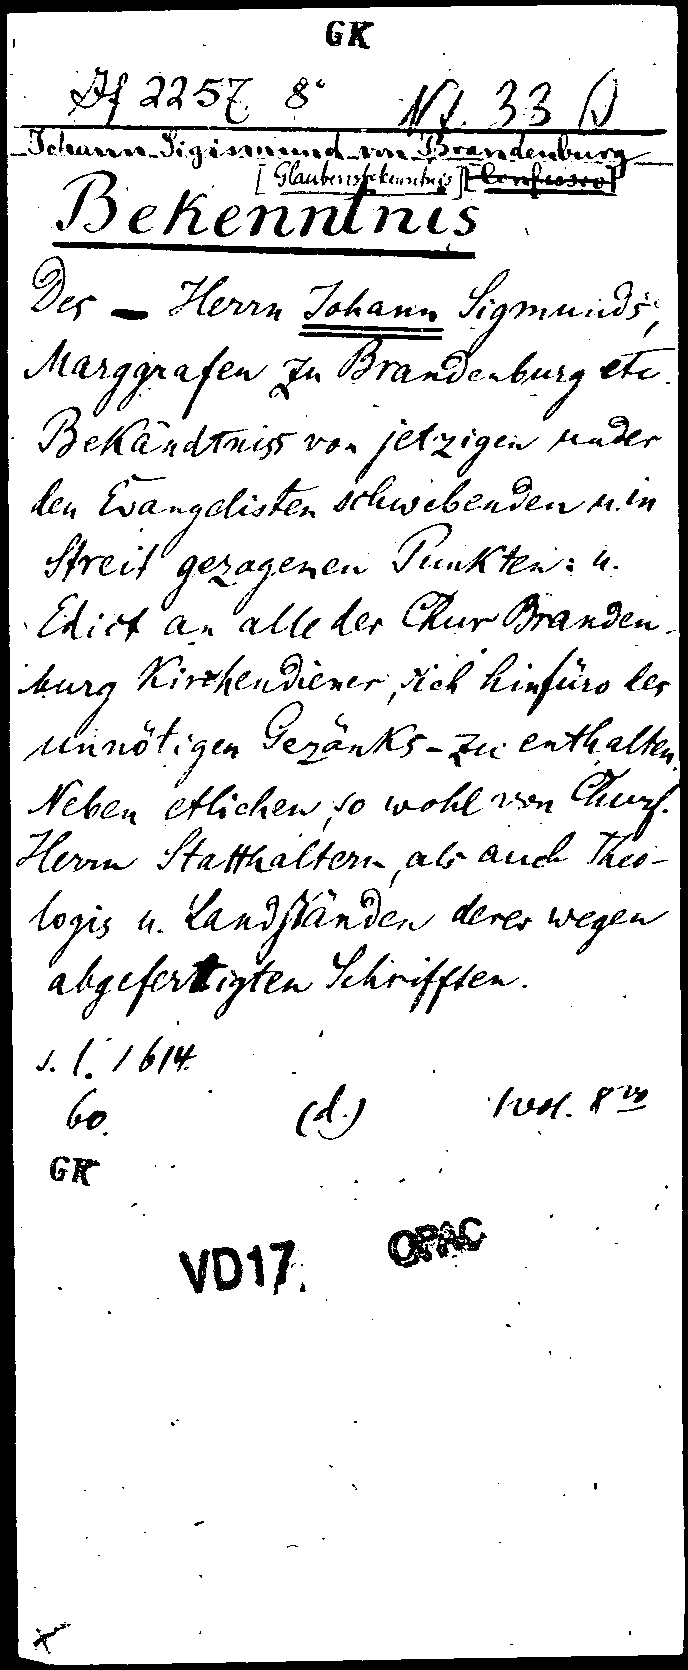 GK
Df 2257 8° Nt. 33
Johann Sigismund von Brandenburg
[Glaubensbekenntnis] [Confessio]
Bekenntnis
Des — Herrn Johann Sigmunds,
Marggrafen zu Brandenburg etc.
Bekändtniss von jetzigen under
den Evangelisten schwebenden u. in
Streit gezogenen Punkten: u.
Edict an alle der Chur Branden-
burg Kirchendiener, sich hinfüro des
unnötigen Gezänks - zu enthalten.
Neben etlichen, so wohl von Churf.
Herrn Statthaltern, als auch Theo-
logis u. Landständen derer wegen
abgefertigten Schrifften.
s. l. 1614.
60. (d.) 1 vol. 8vo
GK
VD17. OPAC